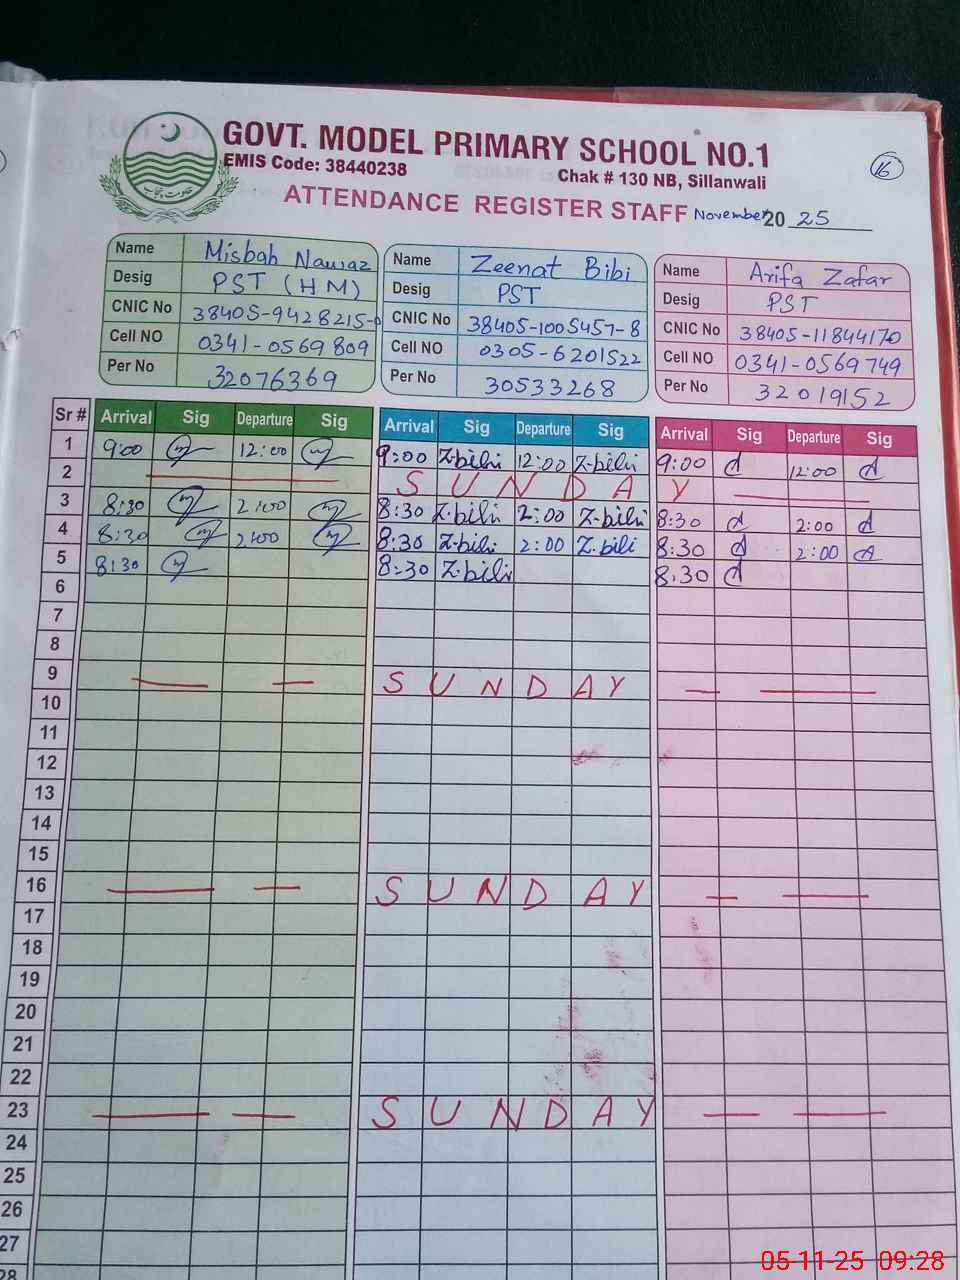 GOVT. MODEL PRIMARY SCHOOL NO.1
EMIS Code: 38440238
Chak # 130 NB, Sillanwali
16
ATTENDANCE REGISTER STAFF November 2025
Name Misbah Nawaz
Desig PST (HM)
CNIC No 38405-9428215-0
Cell NO 0341-0569809
Per No 32076369
Name Zeenat Bibi
Desig PST
CNIC No 38405-1005457-8
Cell NO 0305-6201522
Per No 30533268
Name Arifa Zafar
Desig PST
CNIC No 38405-11844170
Cell NO 0341-0569749
Per No 32019152
Sr # Arrival Sig Departure Sig Arrival Sig Departure Sig Arrival Sig Departure Sig
1 9:00 12:00 9:00 Z.bibi 12:00 Z.bibi 9:00 12:00
2 SUNDAY
3 8:30 2:00 8:30 Z.bibi 2:00 Z.bibi 8:30 2:00
4 8:30 2:00 8:30 Z.bibi 2:00 Z.bibi 8:30 2:00
5 8:30 8:30 Z.bibi 8:30
6
7
8
9 SUNDAY
10
11
12
13
14
15
16 SUNDAY
17
18
19
20
21
22
23 SUNDAY
24
25
26
27
28
05-11-25 09:28